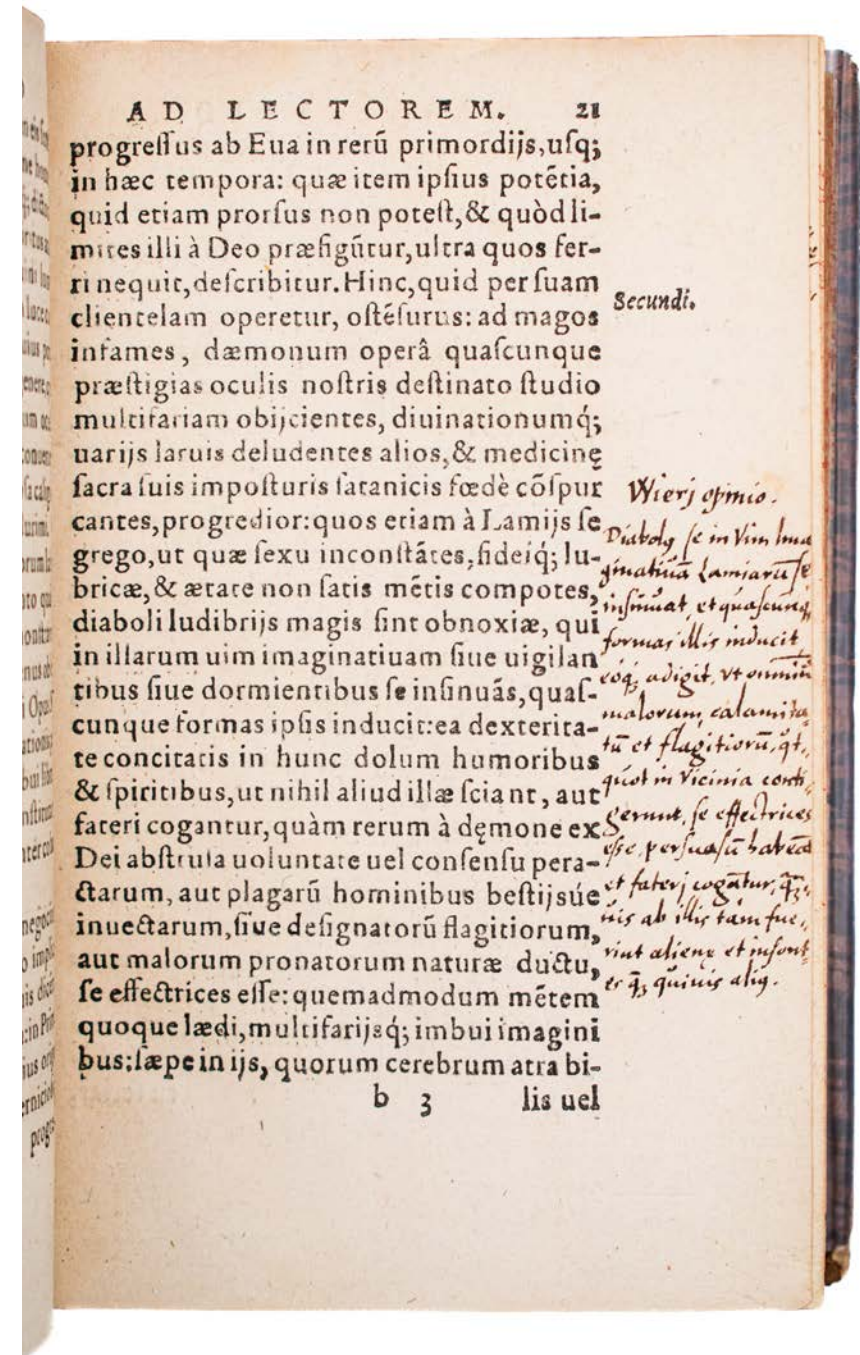 AD LECTOREM. 21
progreſſus ab Eua in rerū primordijs,uſq;
in hæc tempora: quæ item ipſius potētia,
quid etiam prorſus non poteſt,& quòd li-
mites illi à Deo præfigūtur,ultra quos fer-
ri nequit,deſcribitur.Hinc,quid per ſuam
clientelam operetur, oſtēſurus: ad magos
infames, dæmonum operâ quaſcunque
præſtigias oculis noſtris deſtinato ſtudio
multifariam obijcientes, diuinationumq́;
uarijs laruis deludentes alios,& medicinę
ſacra ſuis impoſturis ſatanicis fœdè cōſpur
cantes,progredior:quos etiam à Lamijs ſe
grego,ut quæ ſexu inconſtātes,fideiq́; lu-
bricæ,& ætate non ſatis mētis compotes,
diaboli ludibrijs magis ſint obnoxiæ, qui
in illarum uim imaginatiuam ſiue uigilan
tibus ſiue dormientibus ſe inſinuās,quaſ-
cunque formas ipſis inducit:ea dexterita-
te concitatis in hunc dolum humoribus
& ſpiritibus,ut nihil aliud illæ ſciant, aut
fateri cogantur,quàm rerum à dęmone ex
Dei abſtruſa uoluntate uel conſenſu pera-
ctarum, aut plagarū hominibus beſtijsúe
inuectarum,ſiue deſignatorū flagitiorum,
aut malorum pronatorum naturæ ductu,
ſe effectrices eſſe:quemadmodum mētem
quoque lædi,multifarijsq́; imbui imagini
bus:ſæpe in ijs, quorum cerebrum atra bi-
b 3 lis uel
Secundi.
Wierj opinio.
Diabolꝯ ſe in Vim Ima
ginatiuā Lamiarū ſe
inſinuat, et quaſcunq,
formas illis inducit
eoq, adigit, vt omniū
malorum, calamita
tū et flagitiorū, qt,
quot in Vicinia conti,
gerunt, ſe effectrices
eſſe, perſuaſū habeāt
et faterj cogātur,
nis ab illis tam fue,
rint alienę et inſont
quiuis aliꝯ.